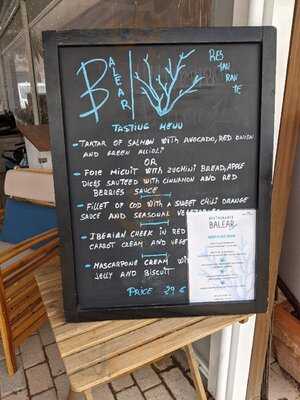 BALEAR
RES
TAU
RAN
TE
TASTING MENU
- TARTAR OF SALMON WITH AVOCADO, RED ONION
AND GREEN ALLIOLI
OR
- FOIE MICUIT WITH ZUCHINI BREAD, APPLE
DICES SAUTEED WITH CINNAMON AND RED
BERRIES SAUCE
- FILLET OF COD WITH A SWEET CHILI ORANGE
SAUCE AND SEASONAL
- IBERIAN CHEEK IN RED
CARROT CREAM AND
- MASCARPONE CREAM
JELLY AND BISCUIT
PRICE: 29 €
RESTAURANTE
BALEAR